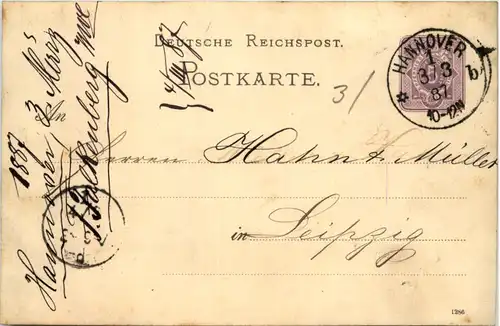 DEUTSCHE REICHSPOST.
POSTKARTE.
HANNOVER
1
3/3
87
10-12N
b
3/
An
Herren Hahn & Müller
in Leipzig
1887
Hannover, 3 März
Falkenberg
4/III 87
1286